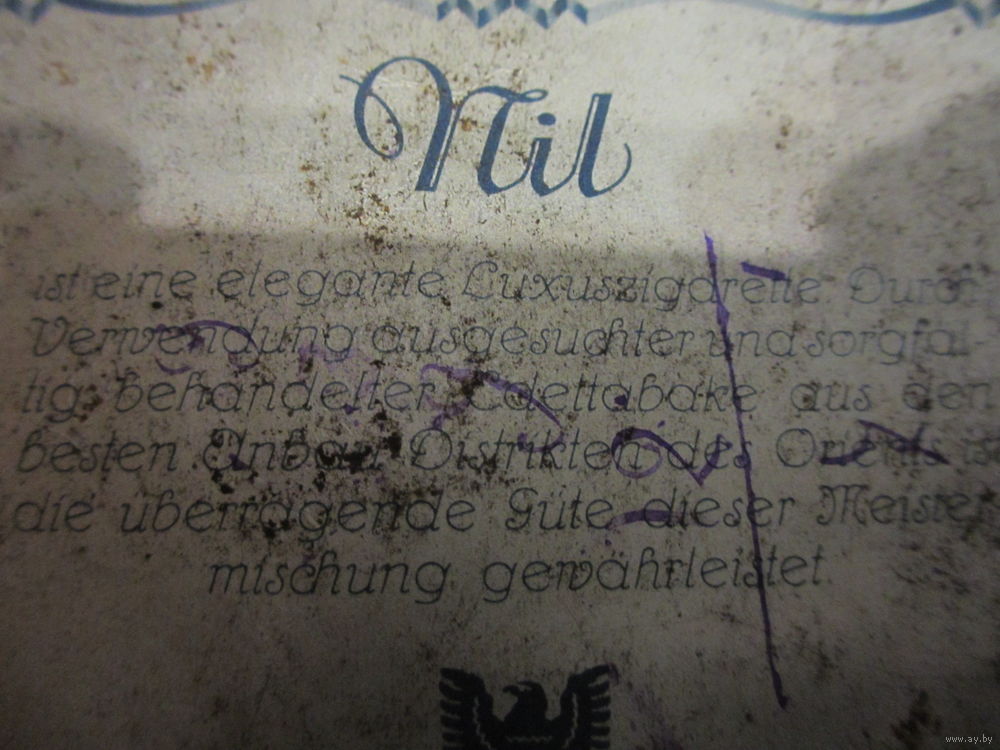 Nil
ist eine elegante Luxuszigarette Durch
Verwendung ausgesuchter und sorgfäl-
tig behandelter Edeltabake aus den
besten Anbau Distrikten des Orients ist
die überragende Güte dieser Meister
mischung gewährleistet.
www.ay.by